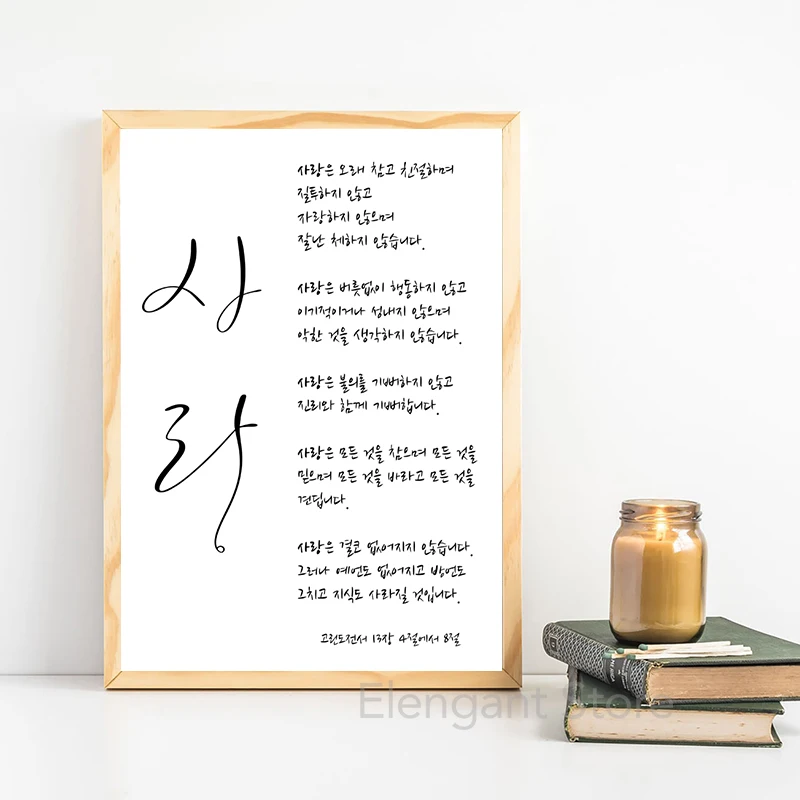 사랑
사랑은 오래 참고 친절하며
질투하지 않고
자랑하지 않으며
잘난 체하지 않습니다.
사랑은 버릇없이 행동하지 않고
이기적이거나 성내지 않으며
악한 것을 생각하지 않습니다.
사랑은 불의를 기뻐하지 않고
진리와 함께 기뻐합니다.
사랑은 모든 것을 참으며 모든 것을
믿으며 모든 것을 바라고 모든 것을
견딥니다.
사랑은 결코 없어지지 않습니다.
그러나 예언도 없어지고 방언도
그치고 지식도 사라질 것입니다.
고린도전서 13장 4절에서 8절
Elengant Store